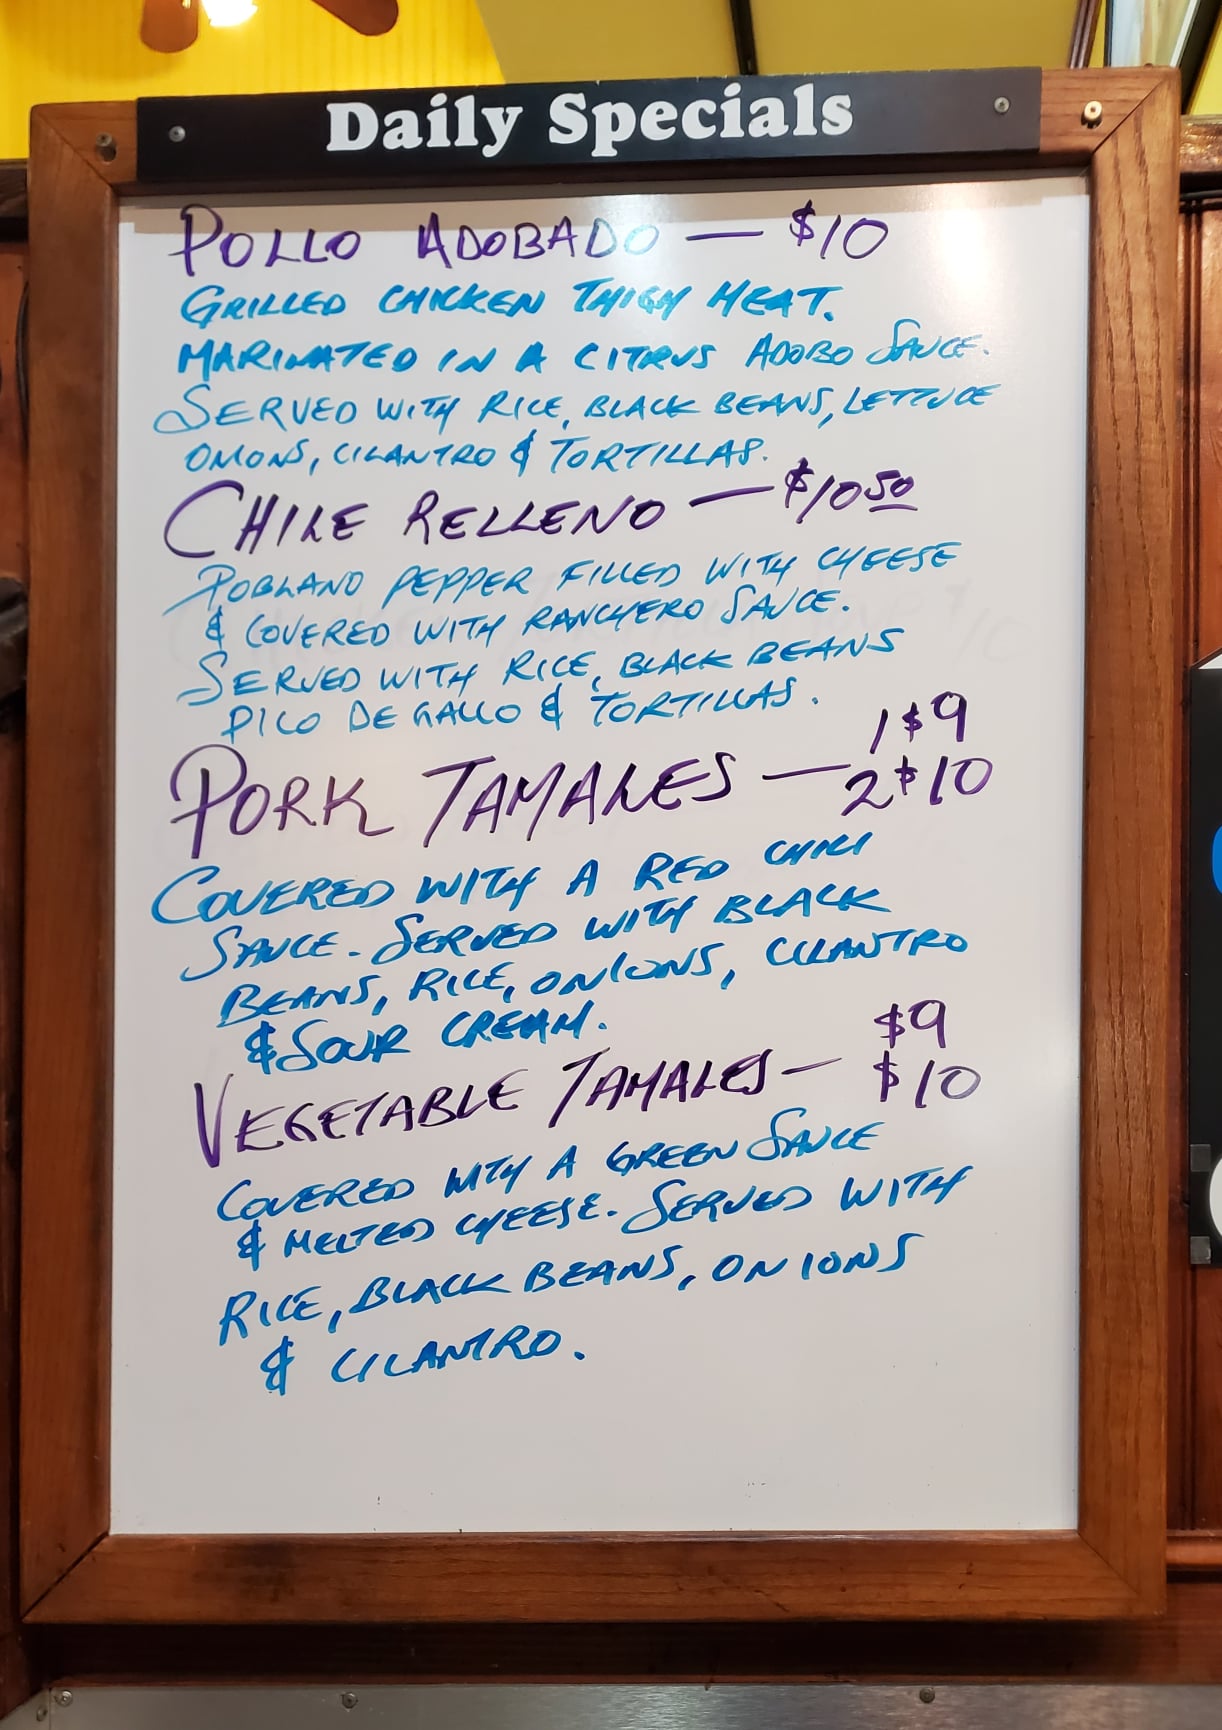 Daily Specials
POLLO ADOBADO — $10
GRILLED CHICKEN THIGH MEAT.
MARINATED IN A CITRUS ADOBO SAUCE.
SERVED WITH RICE, BLACK BEANS, LETTUCE
ONIONS, CILANTRO & TORTILLAS.
CHILE RELLENO — $10 50
POBLANO PEPPER FILLED WITH CHEESE
& COVERED WITH RANCHERO SAUCE.
SERVED WITH RICE, BLACK BEANS
PICO DE GALLO & TORTILLAS.
1 $9
PORK TAMALES — 2 $10
COVERED WITH A RED CHILI
SAUCE. SERVED WITH BLACK
BEANS, RICE, ONIONS, CILANTRO
& SOUR CREAM.
$9
VEGETABLE TAMALES — $10
COVERED WITH A GREEN SAUCE
& MELTED CHEESE. SERVED WITH
RICE, BLACK BEANS, ONIONS
& CILANTRO.